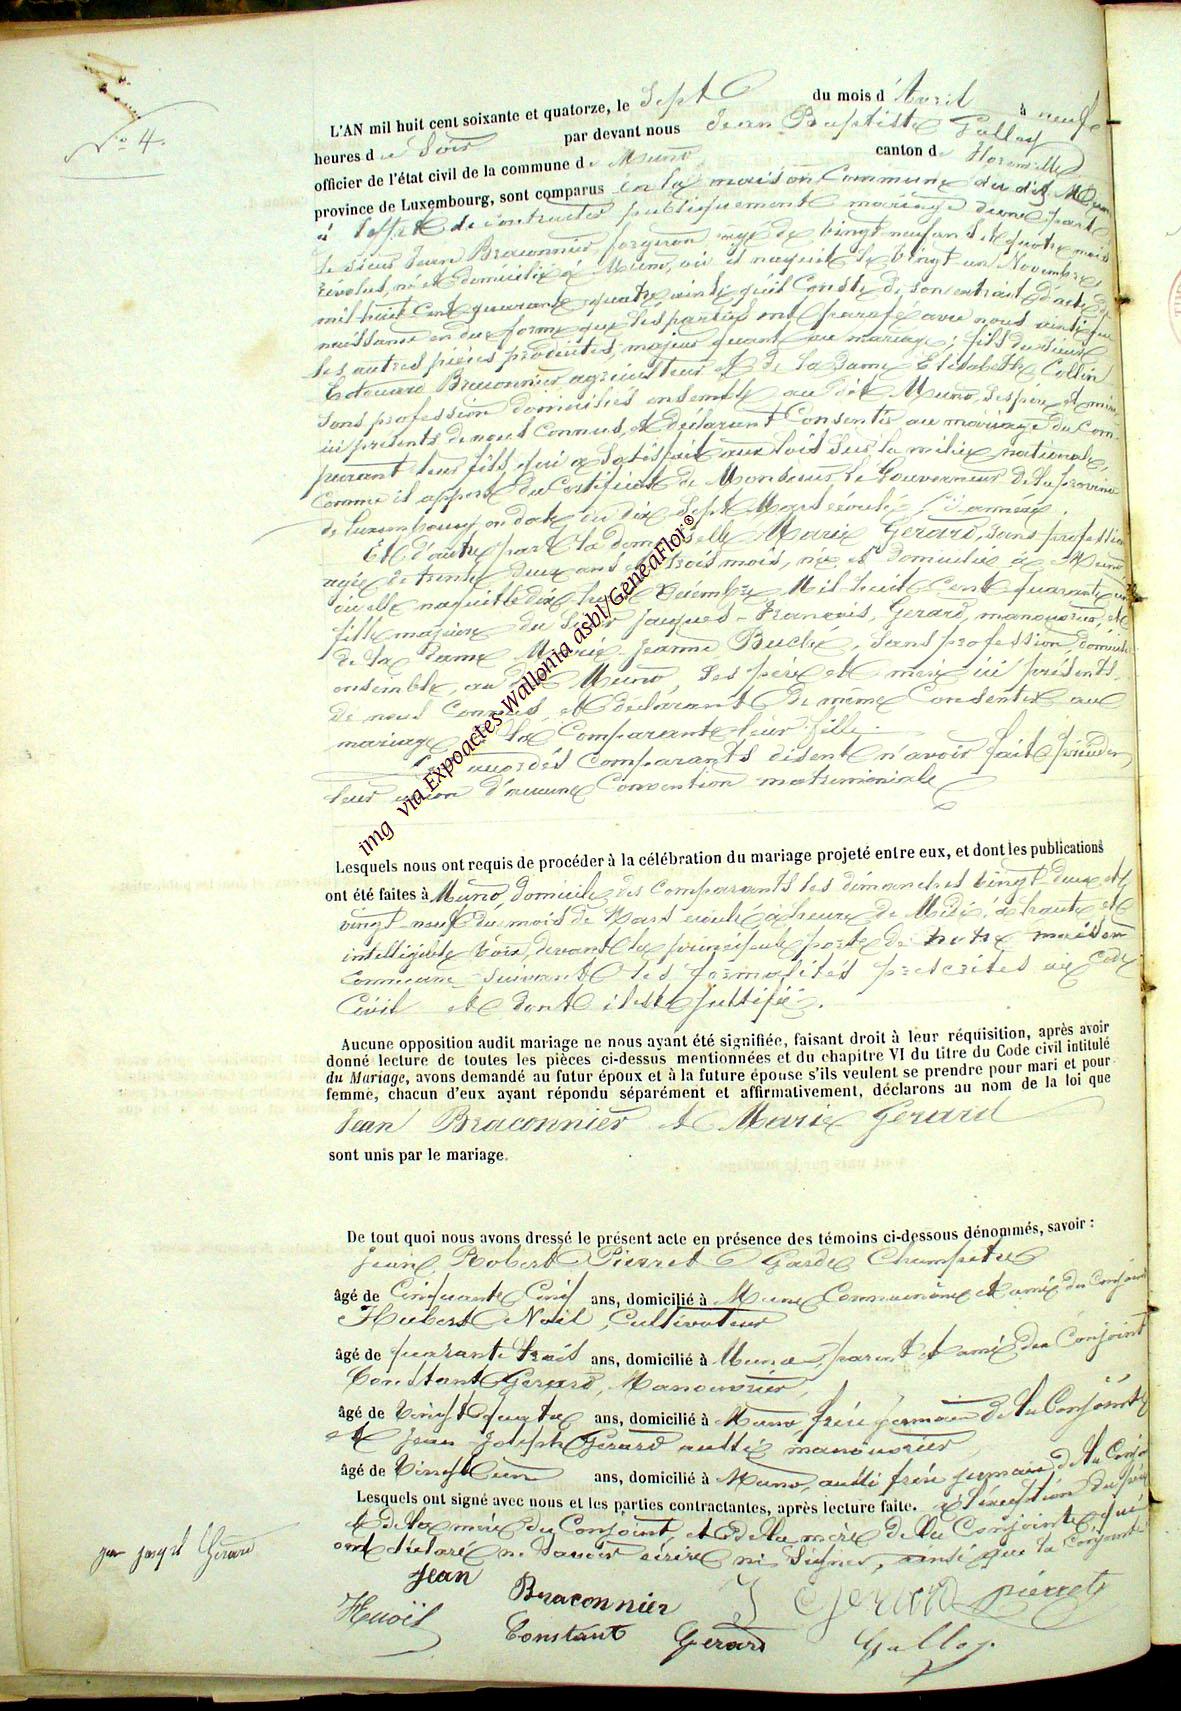 N° 4.
L'AN mil huit cent soixante et quatorze, le Sept du mois d'Avril à neuf
heures du Soir par devant nous Jean Baptiste Galloy
officier de l'état civil de la commune de Muno canton de Florenville
province de Luxembourg, sont comparus en la maison Commune du dit Muno
à l'effet de contracter publiquement mariage d'une part
le sieur Jean Braconnier forgeron agé de vingt neuf ans et quatre mois
révolus, né et domicilié à Muno, où il naquit le vingt un Novembre
mil huit cent quarante quatre ainsi qu'il Conste de son extrait d'acte de
naissance en due forme que les parties ont parafé avec nous ainsi que
les autres pièces produites, majeur quant au mariage; fils du sieur
Edouard Braconnier agriculteur et de la Dame Elisabeth Collin
sans profession domiciliés ensemble au dit Muno, ses père et mère
ici présents de nous Connus, et déclarant Consentir au mariage du Com-
parant leur fils, qui a satisfait aux lois sur la milice nationale,
Comme il appert du Certificat de Monsieur le Gouverneur de la province
de Luxembourg en date du dix Sept Mars écoulé, annexé.
Et d'autre part la demoiselle Marie Gerard, sans profession
agée de trente deux ans et trois mois, née et domiciliée à Muno
où elle naquit le dix Décembre Mil huit Cent quarante un
fille majeure du Sieur Jacques-François Gerard, manouvrier, et
de la Dame Marie-Jeanne Buché, sans profession, domiciliés
ensemble, au dit Muno, ses père et mère ici présents
de nous Connus et déclarant de même Consentir au
mariage de la Comparante leur fille.
Les accordés Comparants disent n'avoir fait précéder
leur union d'aucune Convention matrimoniale
img via Expoactes Wallonia asbl/GeneaFlor®
Lesquels nous ont requis de procéder à la célébration du mariage projeté entre eux, et dont les publications
ont été faites à Muno, domicile des Comparants les dimanches vingt-deux et
vingt-neuf du mois de Mars écoulé à heure de Midi, à haute et
intelligible voix, devant la principale porte de notre maison
Commune suivant les formalités prescrites au Code
Civil et dont il est justifié.
Aucune opposition audit mariage ne nous ayant été signifiée, faisant droit à leur réquisition, après avoir
donné lecture de toutes les pièces ci-dessus mentionnées et du chapitre VI du titre du Code civil intitulé
du Mariage, avons demandé au futur époux et à la future épouse s'ils veulent se prendre pour mari et pour
femme, chacun d'eux ayant répondu séparément et affirmativement, déclarons au nom de la loi que
Jean Braconnier et Marie Gerard
sont unis par le mariage.
De tout quoi nous avons dressé le présent acte en présence des témoins ci-dessous dénommés, savoir :
Jean Robert Pierret Garde Champetre
âgé de Cinquante Cinq ans, domicilié à Muno et ami du Conjoint
Hubert Noël, Cultivateur
âgé de quarante trois ans, domicilié à Muno, parent et ami du Conjoint
Constant Gerard, Manouvrier,
âgé de Vingt quatre ans, domicilié à Muno, frère germain de la Conjointe
et Jean Joseph Gerard aussi manouvrier
âgé de Vingt un ans, domicilié à Muno, aussi frère germain de la Conjointe
Lesquels ont signé avec nous et les parties contractantes, après lecture faite. à l'exception du père
et de la mère du Conjoint, et de la mère de la Conjointe qui
ont déclaré ne savoir écrire ni signer, ainsi que la Conjointe
Jean Braconnier J Gerard pierret
jean josept Gerard
Hnoël Constant Gerard Galloy